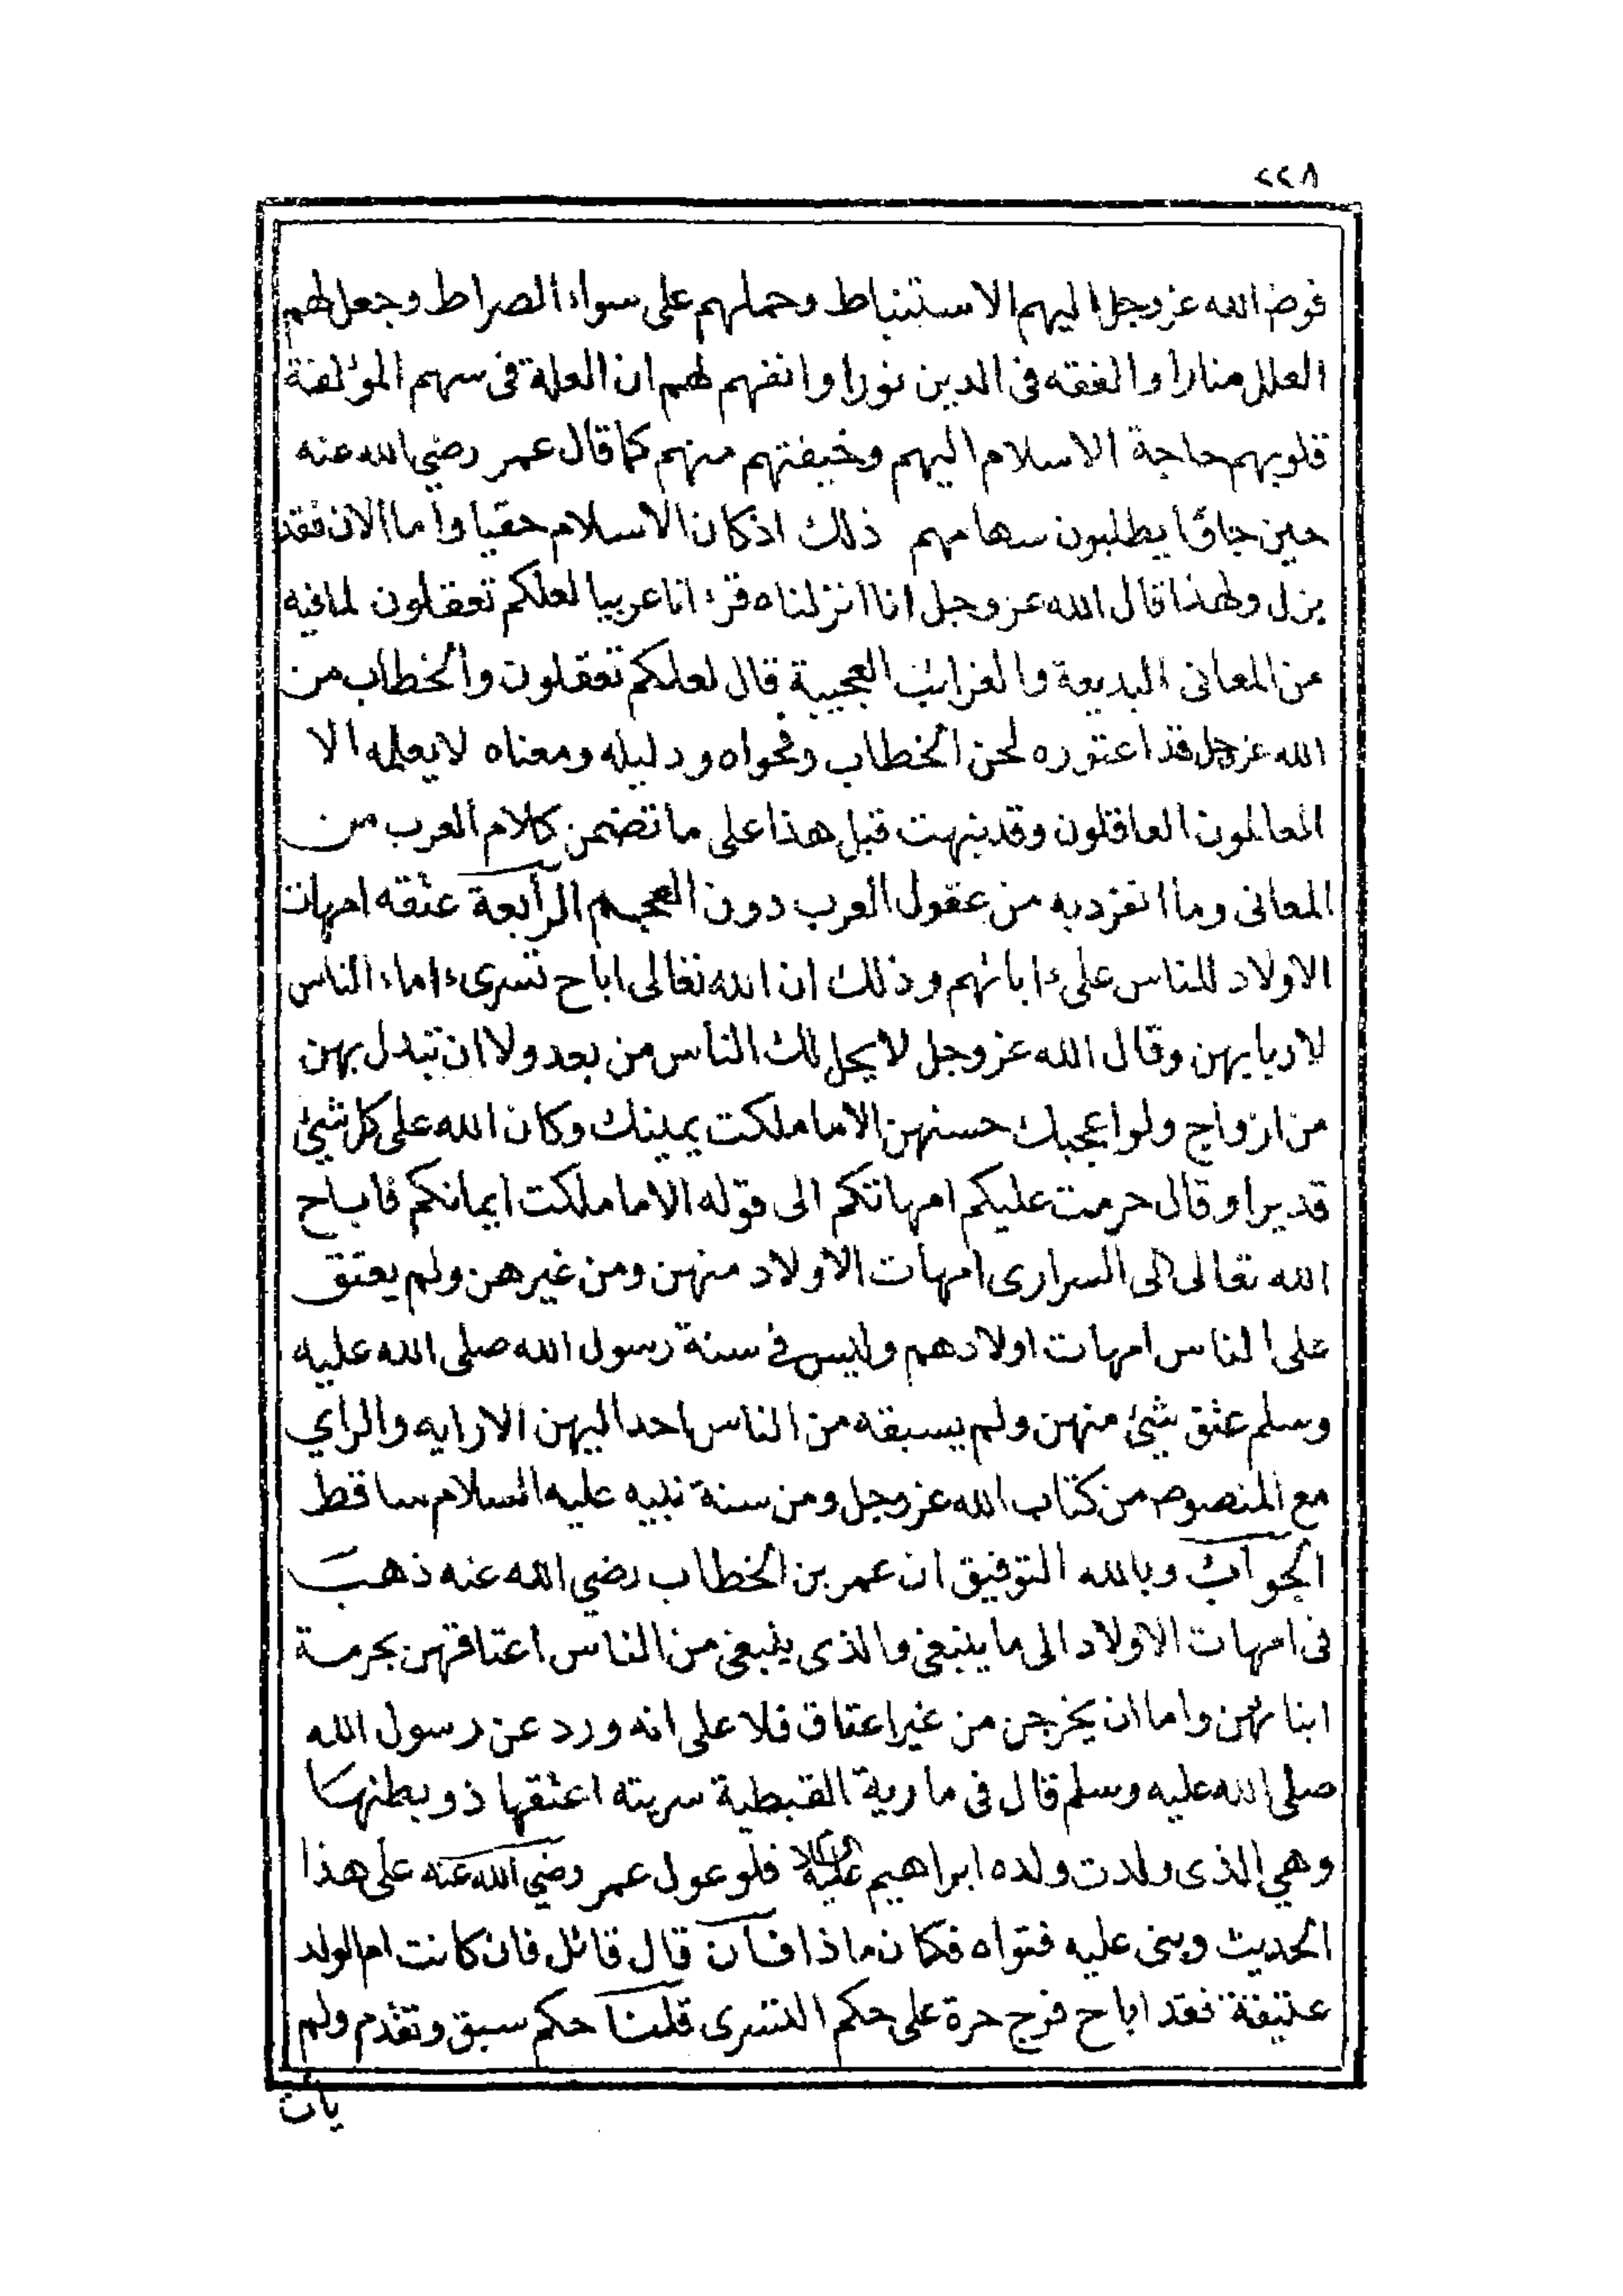 ٢٢٨
فوض الله عز وجل اليهم الاستنباط وحملهم على سواء الصراط وجعل لهم
العلل منارا والفقه في الدين نورا وانفهم لهم ان العلة في سهم المؤلفة
قلوبهم حاجة الاسلام اليهم وخيفتهم منهم كما قال عمر رضي الله عنه
حين جاؤا يطلبون سهامهم ذلك اذ كان الاسلام حقيا واما الان فقد
بزل ولهذا قال الله عز وجل انا انزلناه قرءانا عربيا لعلكم تعقلون لما فيه
من المعانى البديعة والغرائب العجيبة قال لعلكم تعقلون والخطاب من
الله عز وجل قد اعتوره لحن الخطاب وفحواه ودليله ومعناه لا يعلمه الا
العالمون العاقلون وقد نبهت قبل هذا على ما تضمن كلام العرب من
المعانى وما انفرد به من عقول العرب دون العجم الرابعة عتقه امهات
الاولاد للناس على ءابائهم وذلك ان الله تعالى اباح تسرىء اماء الناس
لاربابهن وقال الله عز وجل لا يحل لك الناس من بعد ولا ان تبدل بهن
من ازواج ولو اعجبك حسنهن الا ما ملكت يمينك وكان الله على كل شئ
قديرا وقال حرمت عليكم امهاتكم الى قوله الا ما ملكت ايمانكم فاباح
الله تعالى الى السرارى امهات الاولاد منهن ومن غيرهن ولم يعتق
على الناس امهات اولادهم وليس في سنة رسول الله صلى الله عليه
وسلم عتق شئ منهن ولم يسبقه من الناس احد اليهن الا رايه والراي
مع المنصوص من كتاب الله عز وجل ومن سنة نبيه عليه السلام ساقط
الجواب وبالله التوفيق ان عمر بن الخطاب رضي الله عنه ذهب
فى امهات الاولاد الى ما ينبغى والذى ينبغى من الناس اعتاقهن بحرمة
ابنائهن واما ان يخرجن من غير اعتاق فلا على انه ورد عن رسول الله
صلى الله عليه وسلم قال فى مارية القبطية سريته اعتقها ذو بطنها
وهي الذى ولدت ولده ابراهيم عليه السلام فلو عول عمر رضي الله عنه على هذا
الحديث وبنى عليه فتواه فكان ماذا فان قال قائل فان كانت ام الولد
عتيقة فقد اباح فرج حرة على حكم التسرى قلنا حكم سبق وتقدم ولم
يات